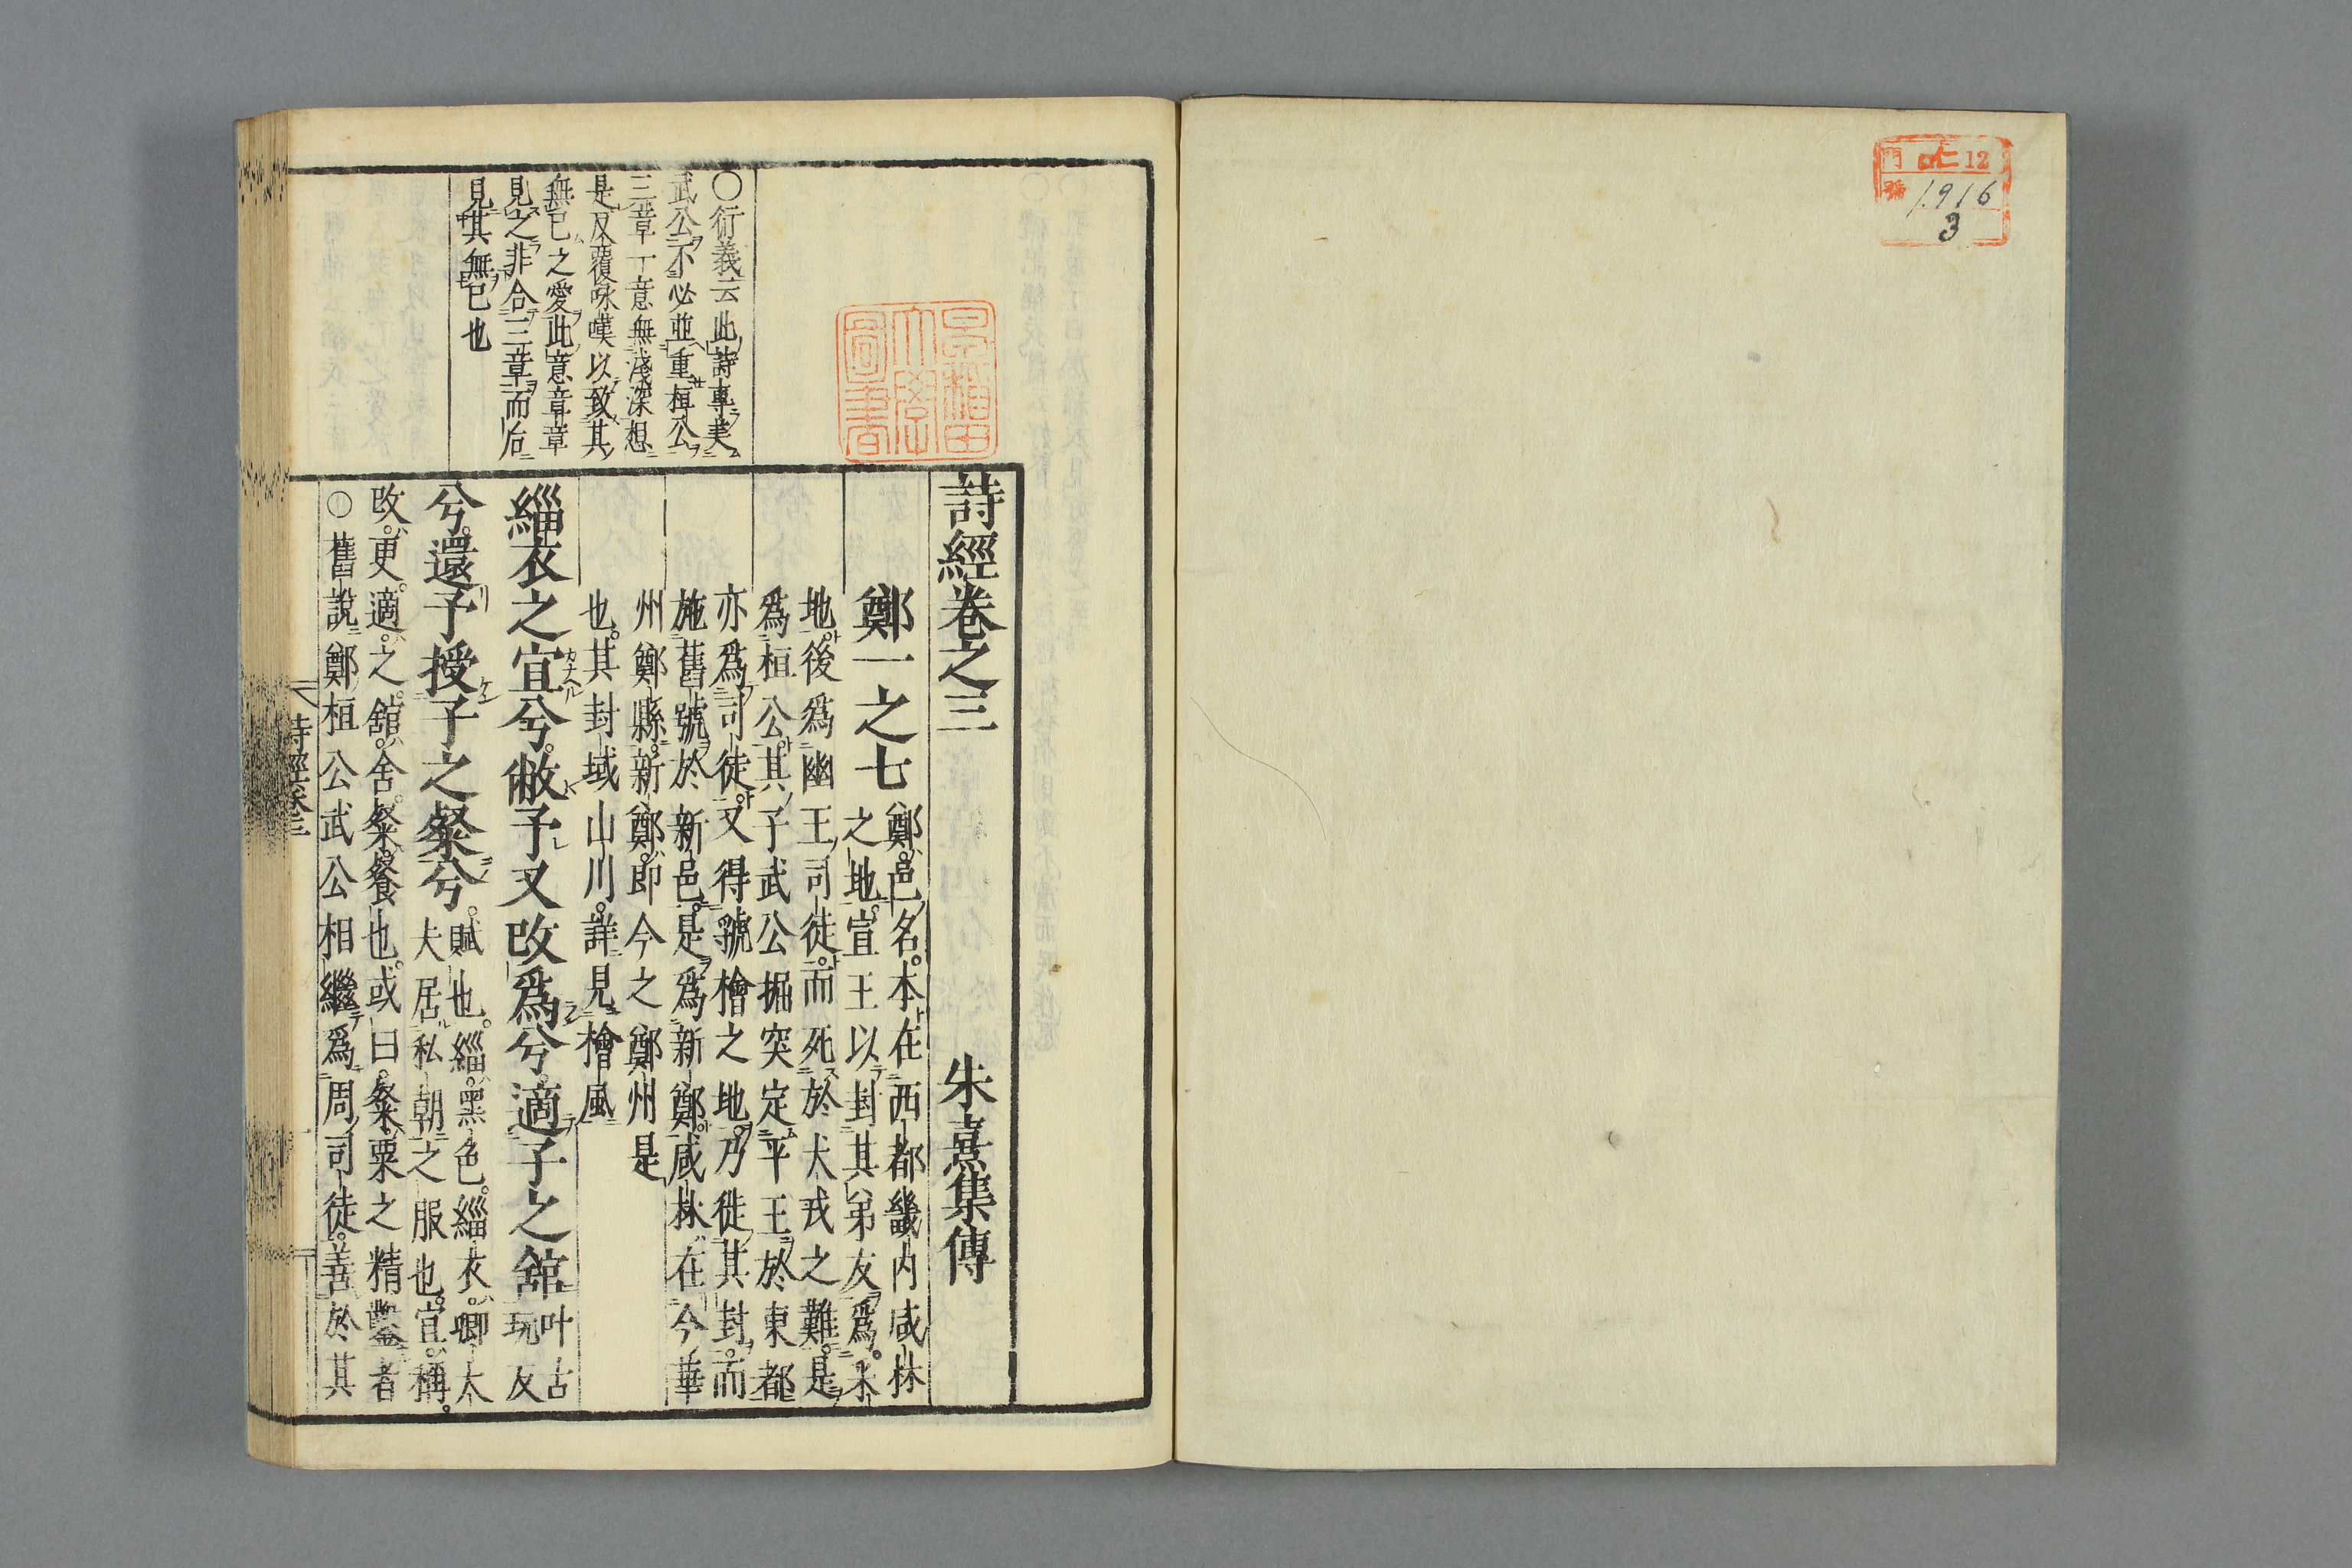 門 ロ 12
號 1916
3
早稲田
大學
圖書
〇衍義云此詩專美
武公不必並重桓公
三章一意無淺深想
是反覆咏嘆以致其
無已之愛此意章章
見之非合三章而后
見其無已也
詩經卷之三 朱熹集傳
鄭一之七
鄭。邑名。本在西都畿内咸林
之地。宣王以封其弟友爲。采
地。後爲幽王司徒。而死於犬戎之難。是
爲桓公。其子武公掘突定平王於東都
亦爲司徒。又得虢檜之地。乃徙其封。而
施舊號於新邑。是爲新鄭。咸林在今華
州鄭縣。新鄭。即今之鄭州是
也。其封域山川。詳見檜風
緇衣之宜兮。敝予又改爲兮。適子之舘
叶古
玩反
兮。還予授子之粲兮。
賦也。緇。黑色。緇衣。卿大
夫居私朝之服也。宜。稱。
改。更。適。之。舘。舍。粲。餐也。或曰。粲。粟之精鑿者
〇舊說鄭桓公武公相繼爲周司徒。善於其
詩經卷三